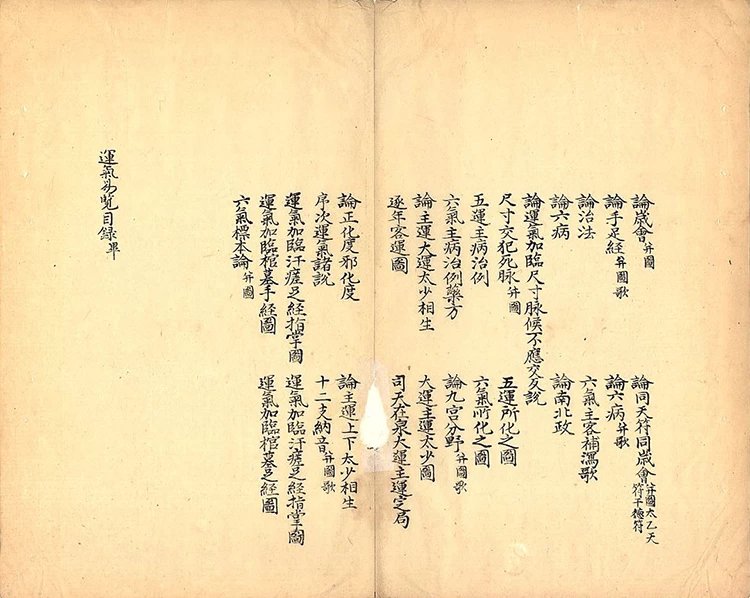 論歲會并圖 論同天符同歲會并圖太乙天符干德符
論手足經并圖歌 論六病并歌
論治法 六氣主客補瀉歌
論六病 論南北政
論運氣加臨尺寸脉候不應交反說
尺寸交犯死脉并圖 五運所化之圖
五運主病治例 六氣所化之圖
六氣主病治例藥方 論九宮分野并圖歌
論主運大運太少相生 大運主運太少圖
逐年客運圖 司天在泉大運主運定局
論正化度邪化度 論主運上下太少相生
序次運氣諸說 十二支納音并圖歌
運氣加臨汗瘥足經指掌圖 運氣加臨汗瘥足經指掌圖
運氣加臨棺墓手經圖 運氣加臨棺墓足經圖
六氣標本論并圖
運氣易覽目録畢